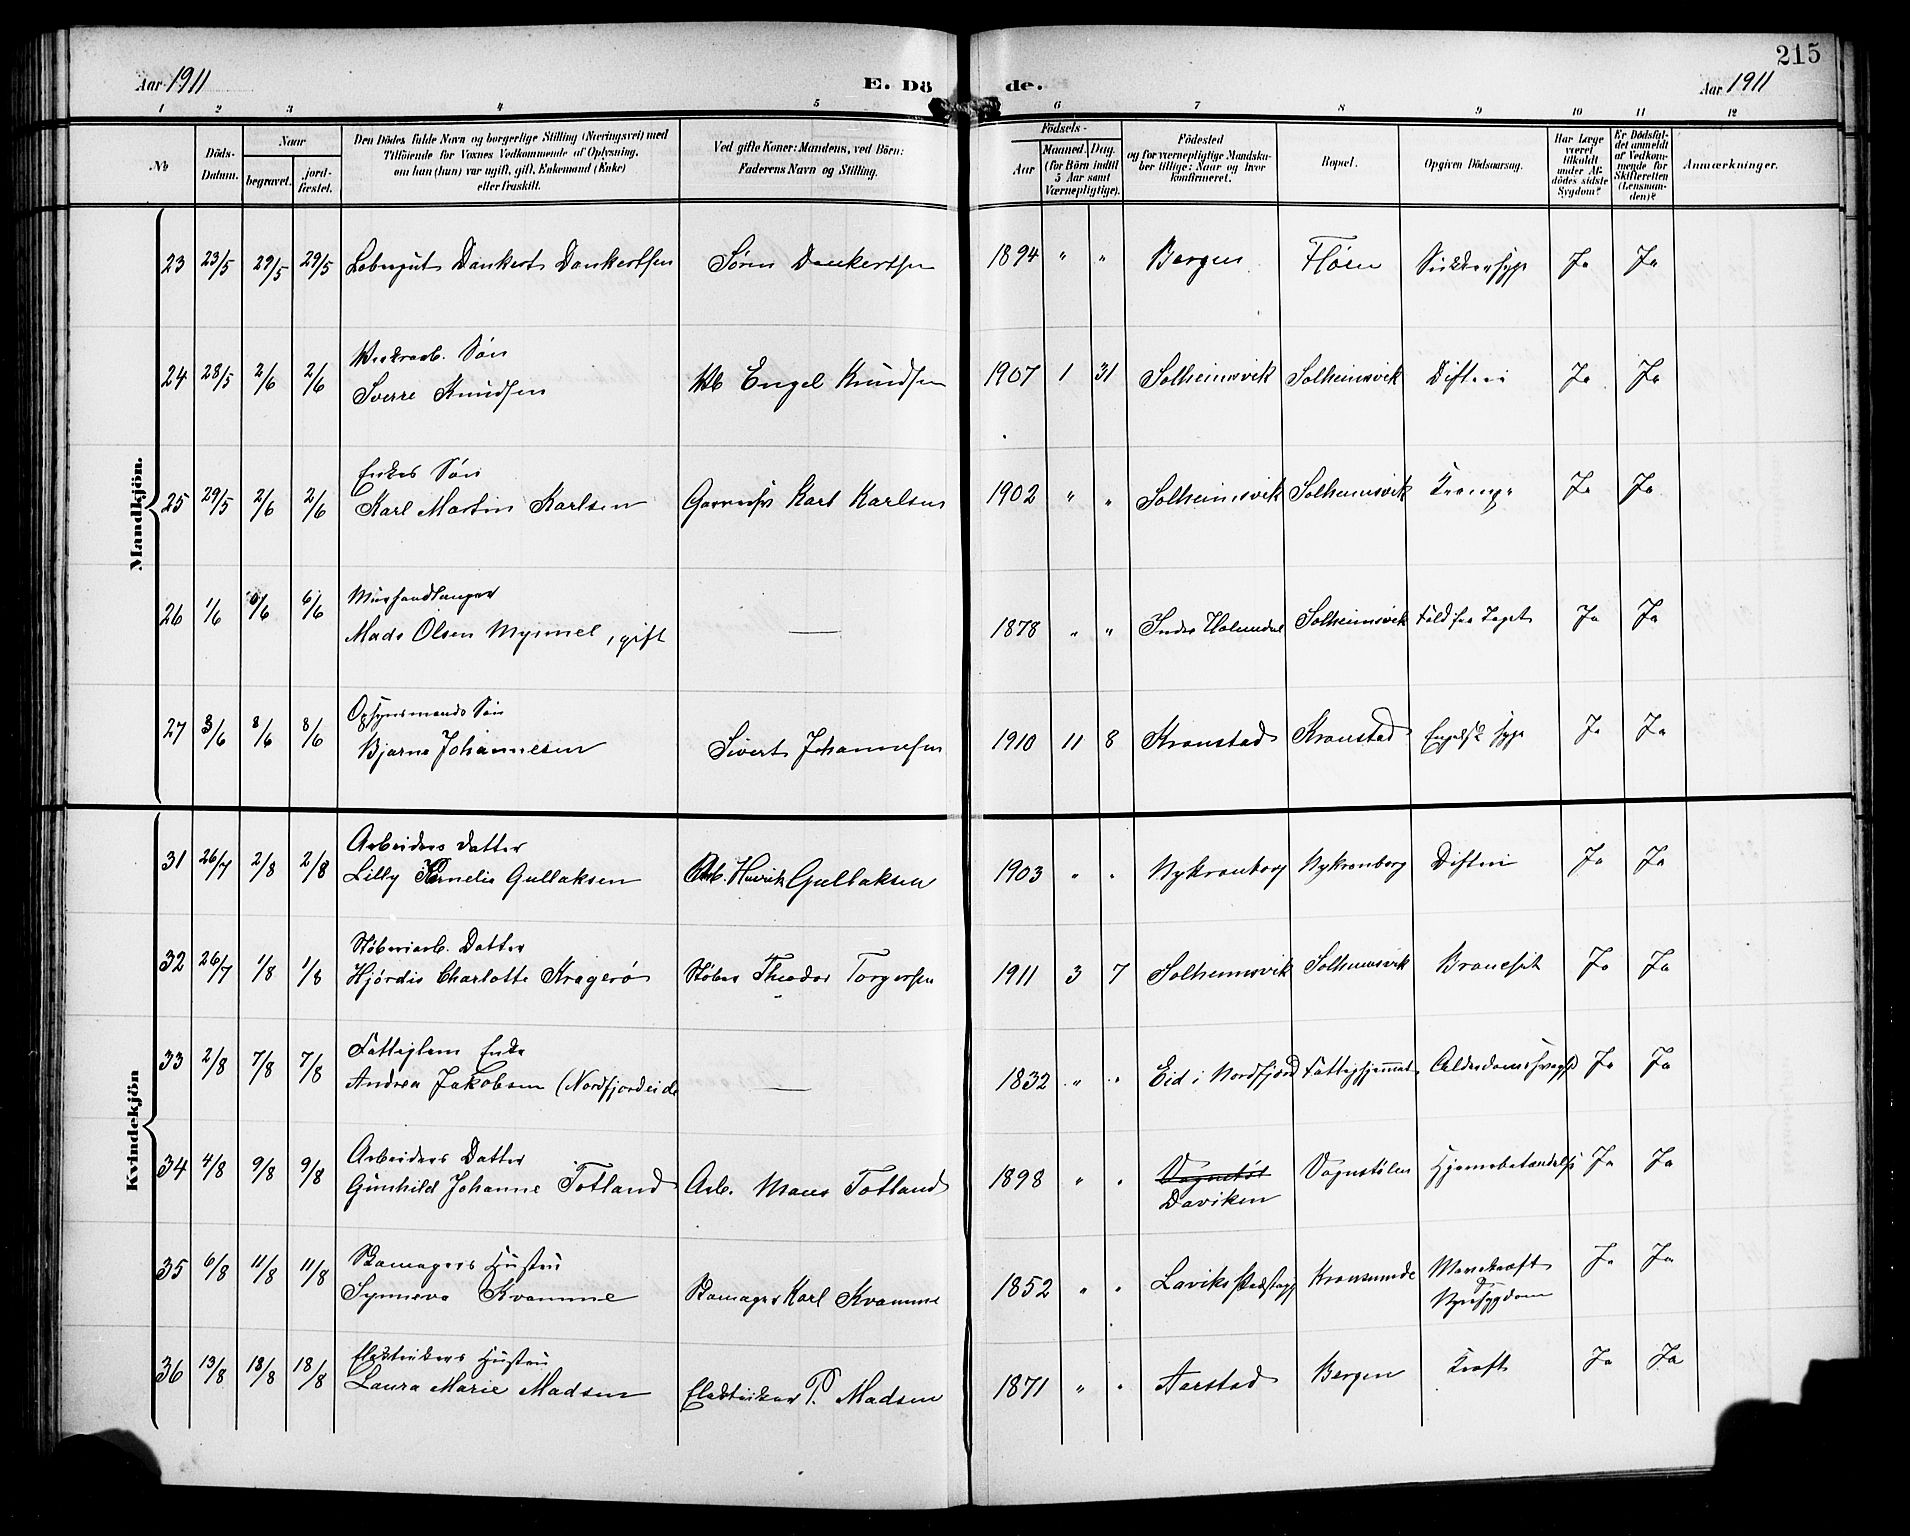 215
Aar 1911
E. Dö
de.
Aar 1911
1 2 3 4 5 6 7 8 9 10 11 12
No
Döds-Datum.
Naar
begravet.
jordfæstet.
Den Dödes fulde Navn og borgerlige Stilling (Næringsvei) med
Tilföiende for Voxnes Vedkommende af Oplysning,
om han (hun) var ugift, gift, Enkemand (Enke)
eller fraskilt.
Ved gifte Koner: Mandens, ved Börn:
Faderens Navn og Stilling.
Födsels-
Aar
Maaned. Dag.
(for Börn indtil
5 Aar samt
Værnepligtige).
Födested
og for værnepligtige Mandskaber tillige: Naar og hvor
konfirmeret.
Bopæl.
Opgiven Dödsaarsag.
Har Læge
været
tilkaldt
under Afdödes sidste
Sygdom?
Er Dödsfaldet anmeldt
af Vedkommende for
Skifteretten
(Lensmanden)?
Anmærkninger.
Mandkjön.
23 23/5 29/5 29/5 Løbegut Dankert Dankertsen Søren Dankertsen 1894 " " Bergen Fløen Sukkersyge Ja Ja
Verksarb. Søn
24 28/5 2/6 2/6 Sverre Knudsen Va Engel Knudsen 1907 1 31 Solheimsvik Solheimsvik Difteri Ja Ja
Enkes Søn
25 29/5 2/6 2/6 Karl Martin Karlsen Karl Karlsen 1902 " " Solheimsvik Solheimsvik Krampe Ja Ja
Murhandlanger
26 1/6 6/6 6/6 Mads Olsen Myrmel, gift — 1878 " " Indre Holmedal Solheimsvik Fald fra Taget Ja Ja
Opsynsmands Søn
27 3/6 8/6 8/6 Bjarne Johannesen Sivert Johannesen 1910 11 8 Kronstad Kronstad Engelsk syge Ja Ja
Kvindekjön
Arbeiders Datter
31 26/7 2/8 2/8 Lilly Kornelia Gullaksen Arb. Henrik Gullaksen 1903 " " Nykronborg Nykronborg Difteri Ja Ja
Støberiarb. Datter
32 26/7 1/8 1/8 Hjørdis Charlotte Kragerø Støber Theodor Torgersen 1911 3 7 Solheimsvik Solheimsvik Bronchit Ja Ja
Fattiglem Enke
33 2/8 7/8 7/8 Andrea Jakobsen (Nordfjordeide — 1832 " " Eid i Nordfjord Fattighjemmet Alderdomssvaghed Ja Ja
Arbeiders Datter
34 4/8 9/8 9/8 Gunhild Johanne Totland Arb. Mons Totland 1898 " " Vognstøl Daviken Vognstølen Hjernebetændelse Ja Ja
Skomagers Hustru
35 6/8 11/8 11/8 Synneva Kvamme Skomager Karl Kvamme 1852 " " Laviks Præstegj Kronminde Mavekræft & Nyresygdom Ja Ja
Elektrikers Hustru
36 13/8 18/8 18/8 Laura Marie Madsen Elektriker P. Madsen 1871 " " Aarstad Bergen Kræft Ja Ja